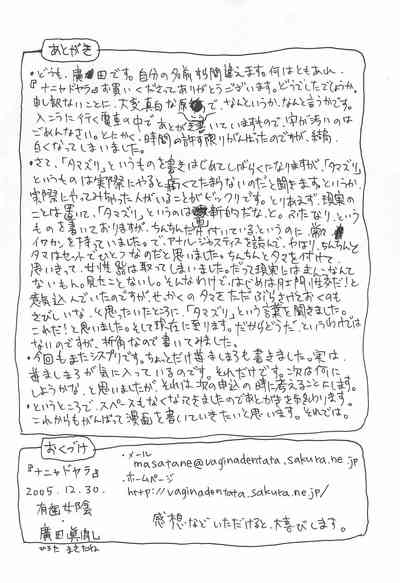 あとがき
・どうも、廣田です。自分の名前すら間違えます。何はともあれ、
『ナニャドヤラ』お買いくださってありがとうございます。どうでしたでしょうか。
申し訳ないことに、大変真白な原で、なんというか、なんと言うかです。
入こうに行く電車の中であとがき書いていますもので、字が汚いのは
ごめんなさい。とにかく、時間の許す限りがんばったのですが、結局
白くなってしまいました。
・さて、「タマズリ」というものを書きはじめてしばらくになりますが、「タマズリ」
というものは実際にやると痛くてたまらないのだと聞きます。というか、
実際にやってみちゃった人がいることがビックリです。とりあえず、現実の
ことは置いて、「タマズリ」というのは新的だな、と。ふたなり、という
ものを書いておりますが、ちんちんだけ付いているというのに常
イワカンを持っていました。で、アナル・ジャスティスを読んで、やはり、ちんちんと
タマはセットでひとつなのだと思いました。ちんちんとタマを付けて、
思いきって、女性器は取ってしまいました。だって現実にはまんこなんて
ないもん。見たことないし。そんなわけで、はじめは肛門性交だ!と
意気込んでいたのですが、せっかくのタマをただぶらさげておくのも
さびしいな、と思いたったころに、「タマズリ」という言葉を聞きました。
これだ!と思いました。そして現在に至ります。だからどうだ、というわけでは
ないのですが、折角なので書いてみました。
・今回もまたシスプリです。ちょんとだけ苺ましまろも書きました。実は、
苺ましまろが気に入っているのです。それだけです。次は何に
しようかな、と思いましたが、それは次の申込の時に考えることにします。
・というところで、スペースもなくなってきましたのであとがきを終わります。
これからもがんばって漫画を書いていきたいと思います。それでは。
おくづけ
『ナニャドヤラ』
2005.12.30.
有歯女陰
・廣田眞胤
ひろた まさたね
・メール
masatane@vaginadentata.sakura.ne.jp
・ホームページ
http://vaginadentata.sakura.ne.jp/
感想などいただけると、大喜びします。